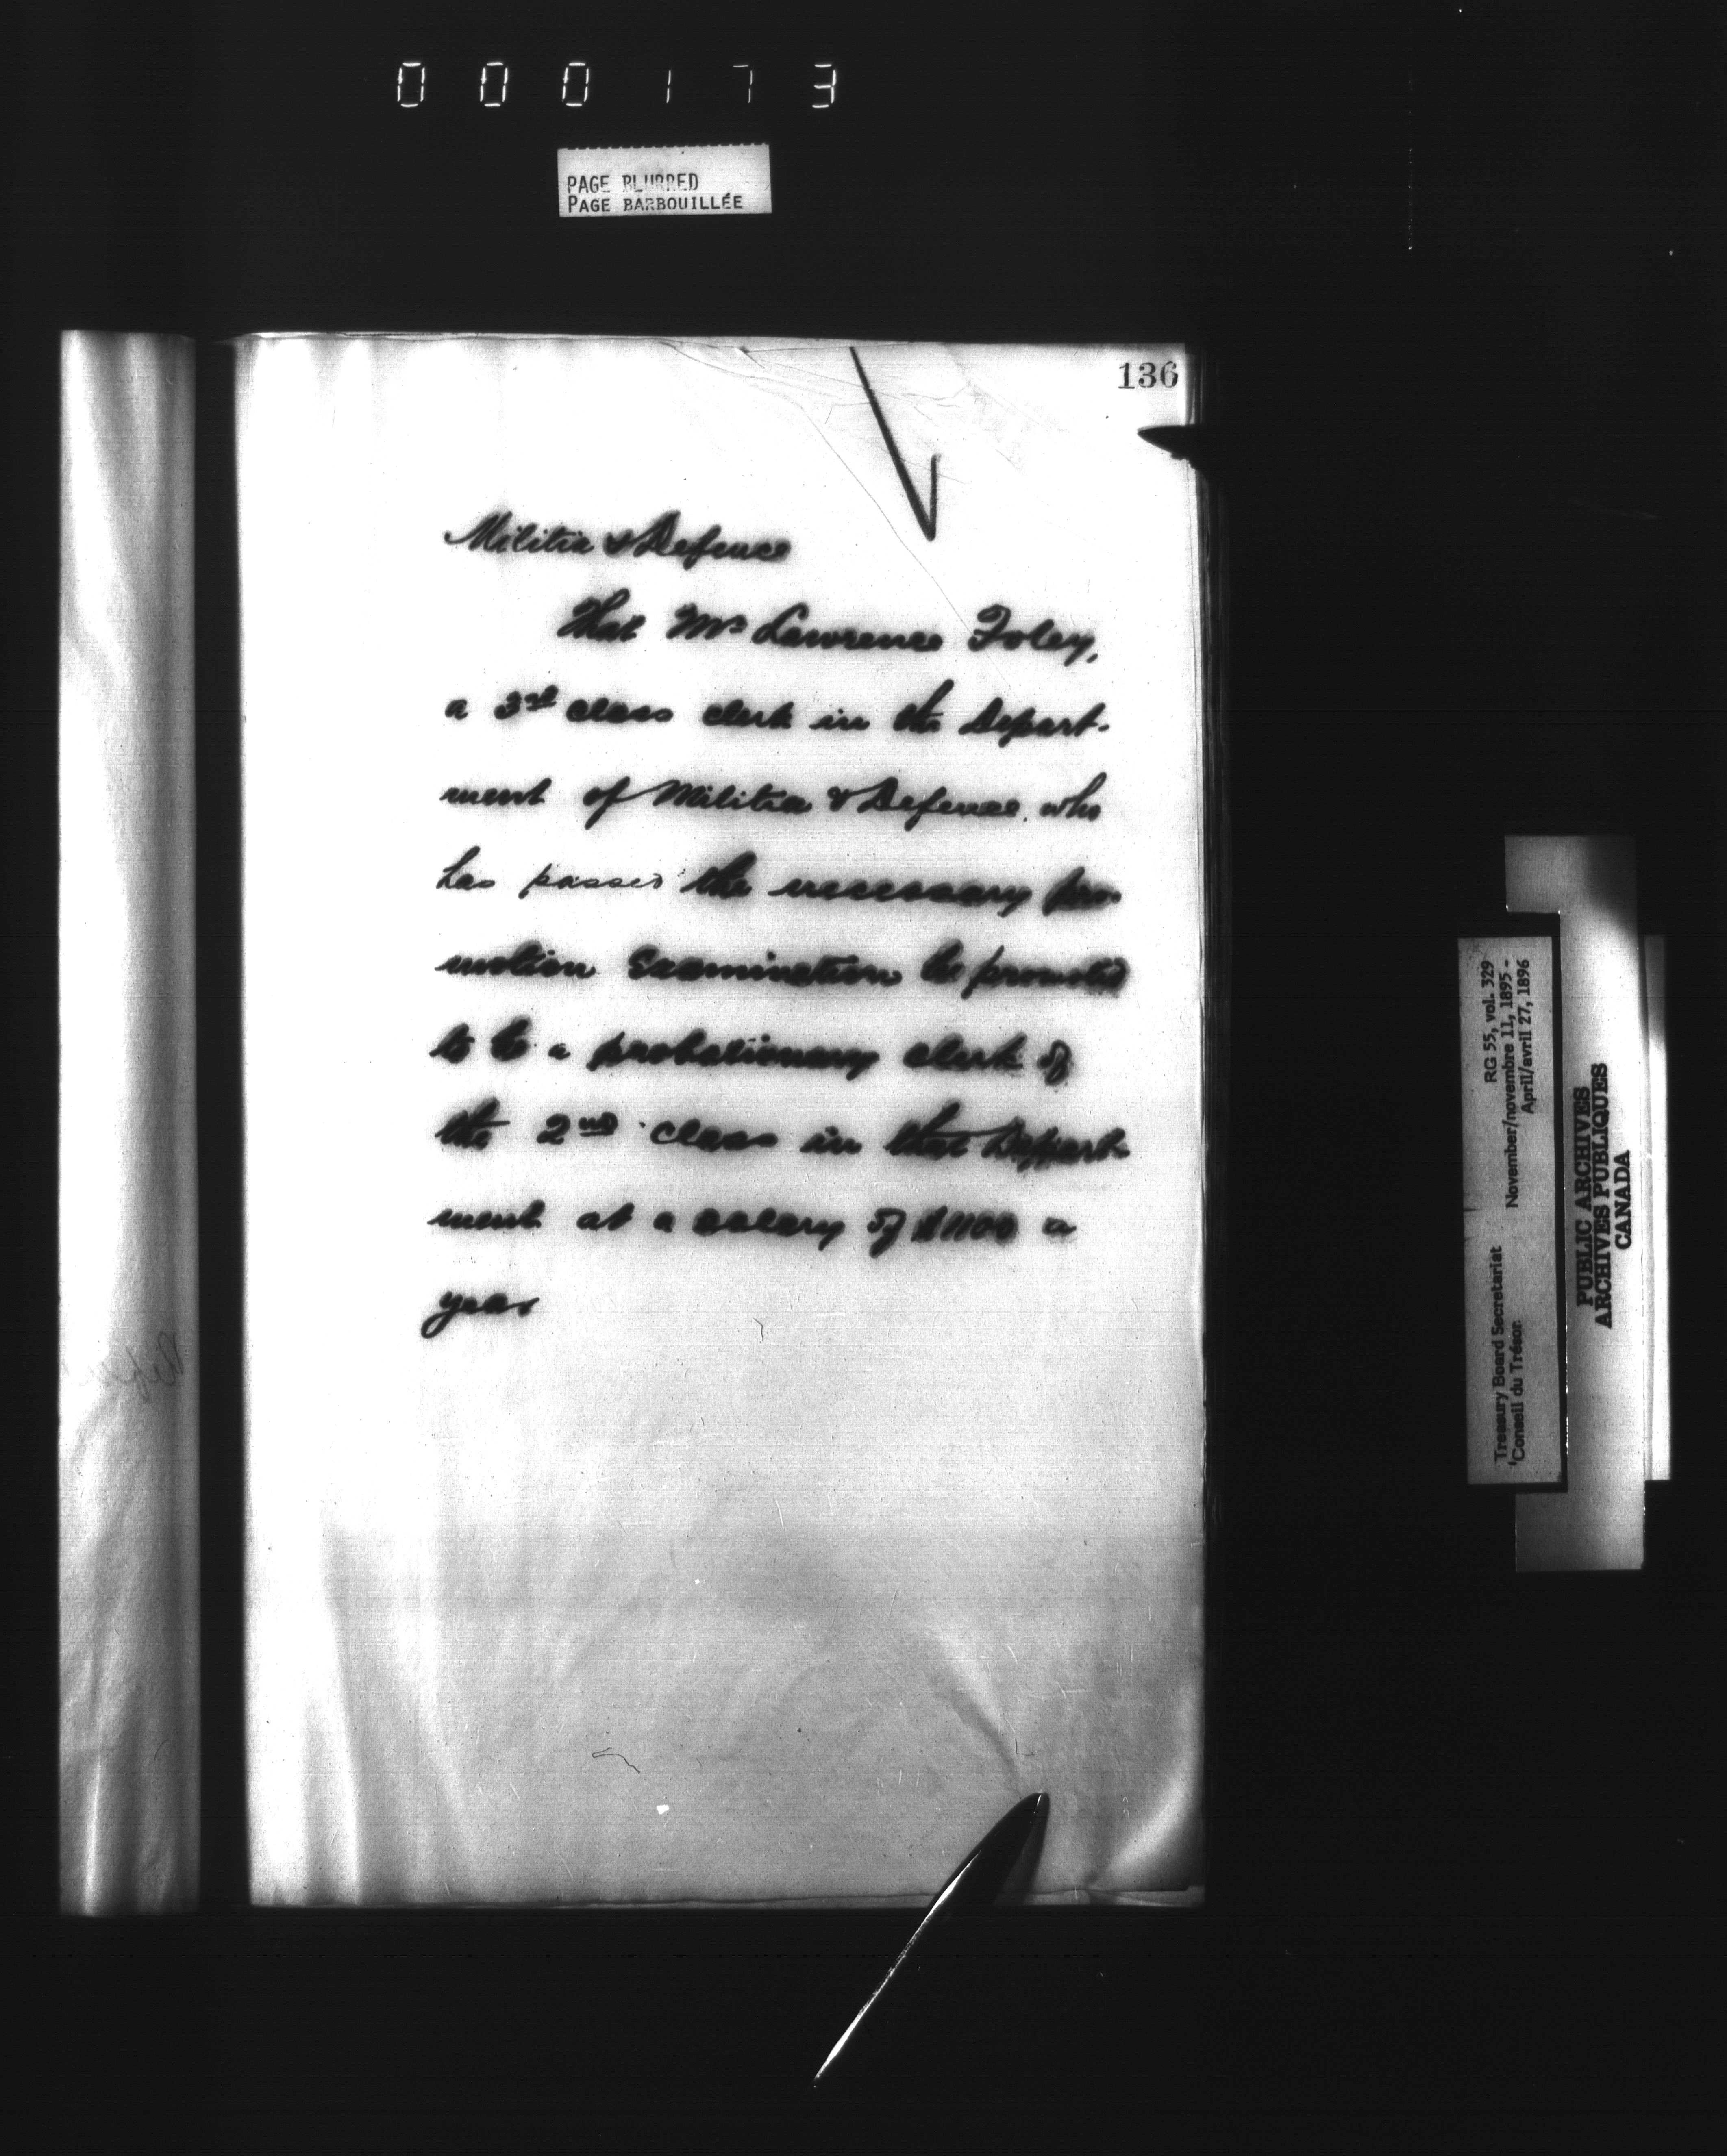 000173
PAGE BLURRED
PAGE BARBOUILLÉE
136
Militia & Defence
That Mr Lawrence Foley,
a 3rd class clerk in the Depart-
ment of Militia & Defence, who
has passed the necessary pro-
motion Examination be promoted
to be a probationary clerk of
the 2nd class in that Depart-
ment at a salary of $1100 a
year
Treasury Board Secretariat RG 55, vol. 329
Conseil du Trésor November/novembre 11, 1895 -
April/avril 27, 1896
PUBLIC ARCHIVES
ARCHIVES PUBLIQUES
CANADA